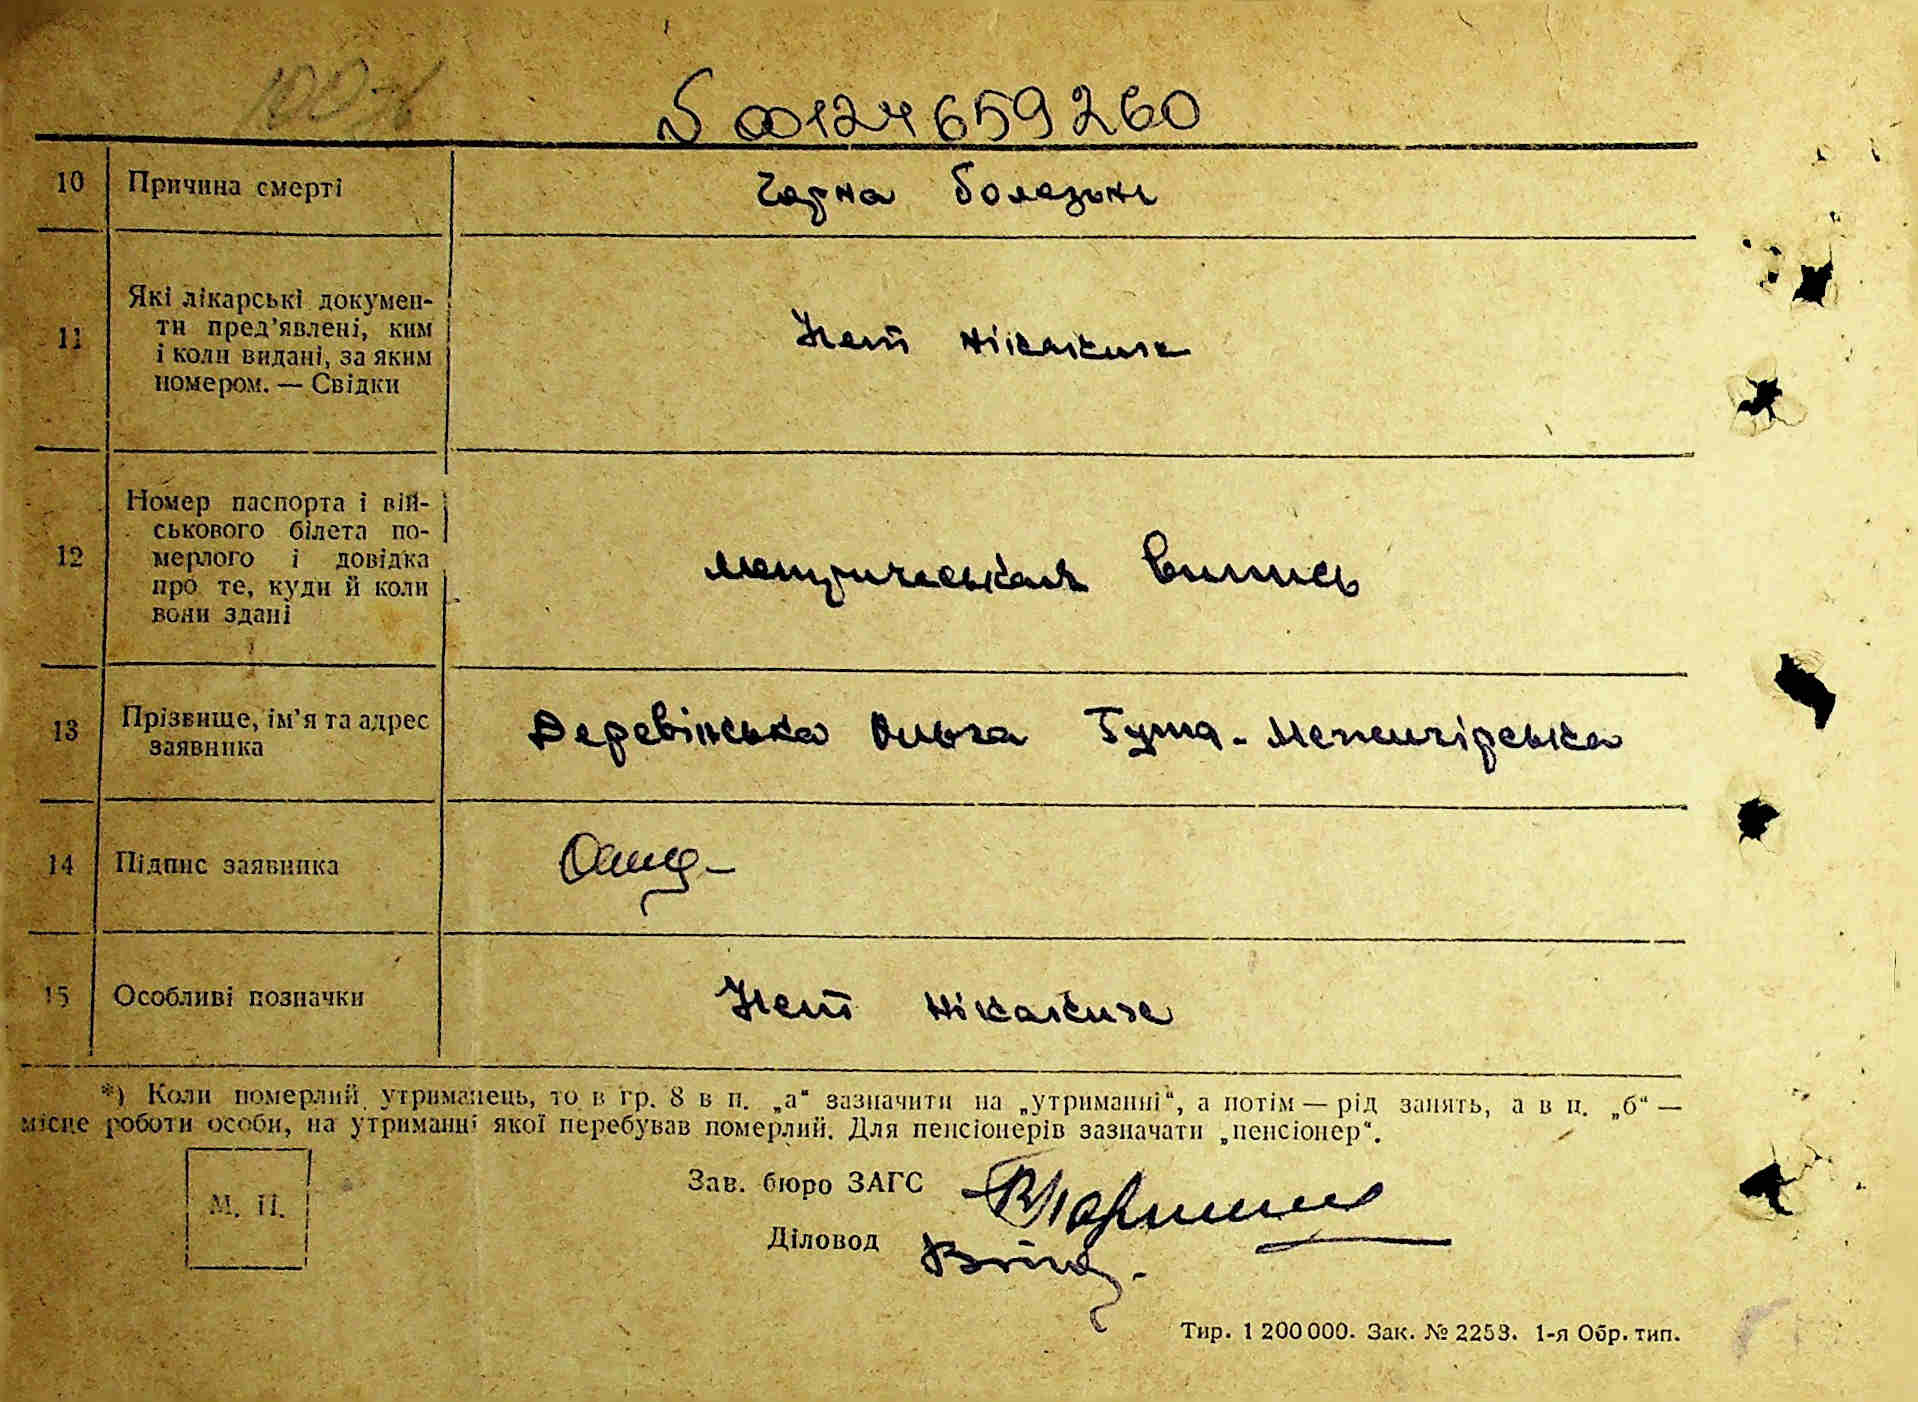 № 00124659260
10 Причина смерті Чорна болезынь
11 Які лікарські докумен-
ти пред’явлені, ким
і коли видані, за яким
номером. — Свідки
Нет нікаких
12 Номер паспорта і вій-
ськового білета по-
мерлого і довідка
про те, куди й коли
вони здані
метрическая випись
13 Прізвище, ім’я та адрес
заявника
Деревінська Ольга Гута-Межигірська
14 Підпис заявника
15 Особливі позначки Нет нікаких
*) Коли померлий утриманець, то в гр. 8 в п. „а“ зазначити на „утриманні“, а потім — рід занять, а в п. „б“ —
місце роботи особи, на утриманні якої перебував померлий. Для пенсіонерів зазначати „пенсіонер“.
М. П.
Зав. бюро ЗАГС
Діловод
Тир. 1 200 000. Зак. № 2253. 1-я Обр. тип.